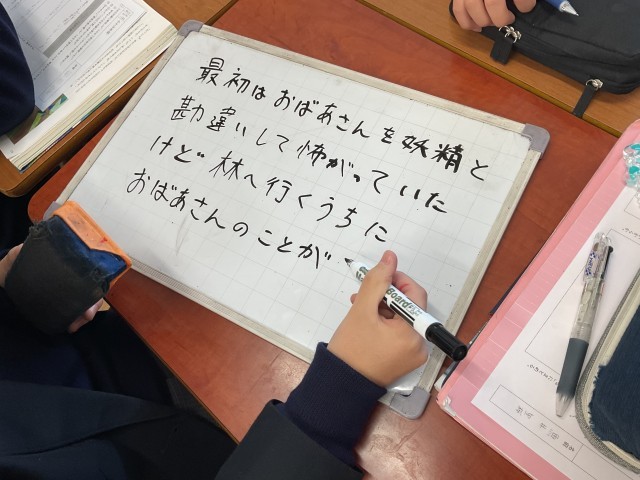 最初はおばあさんを妖精と
勘違いして怖がっていた
けど林へ行くうちに
おばあさんのことが
Board